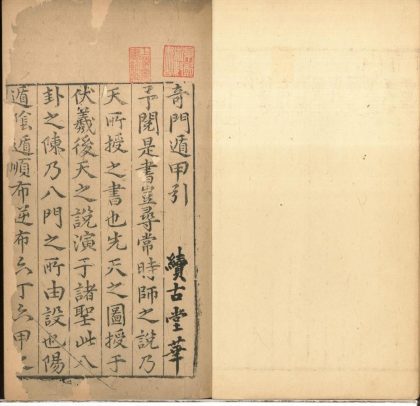 奇門遁甲引
續古堂華
予閱是書豈尋常時師之說乃
天所授之書也先天之圖授于
伏羲後天之說演于諸聖此八
卦之陳乃八門之所由設也陽
遁陰遁順布逆布六丁六甲